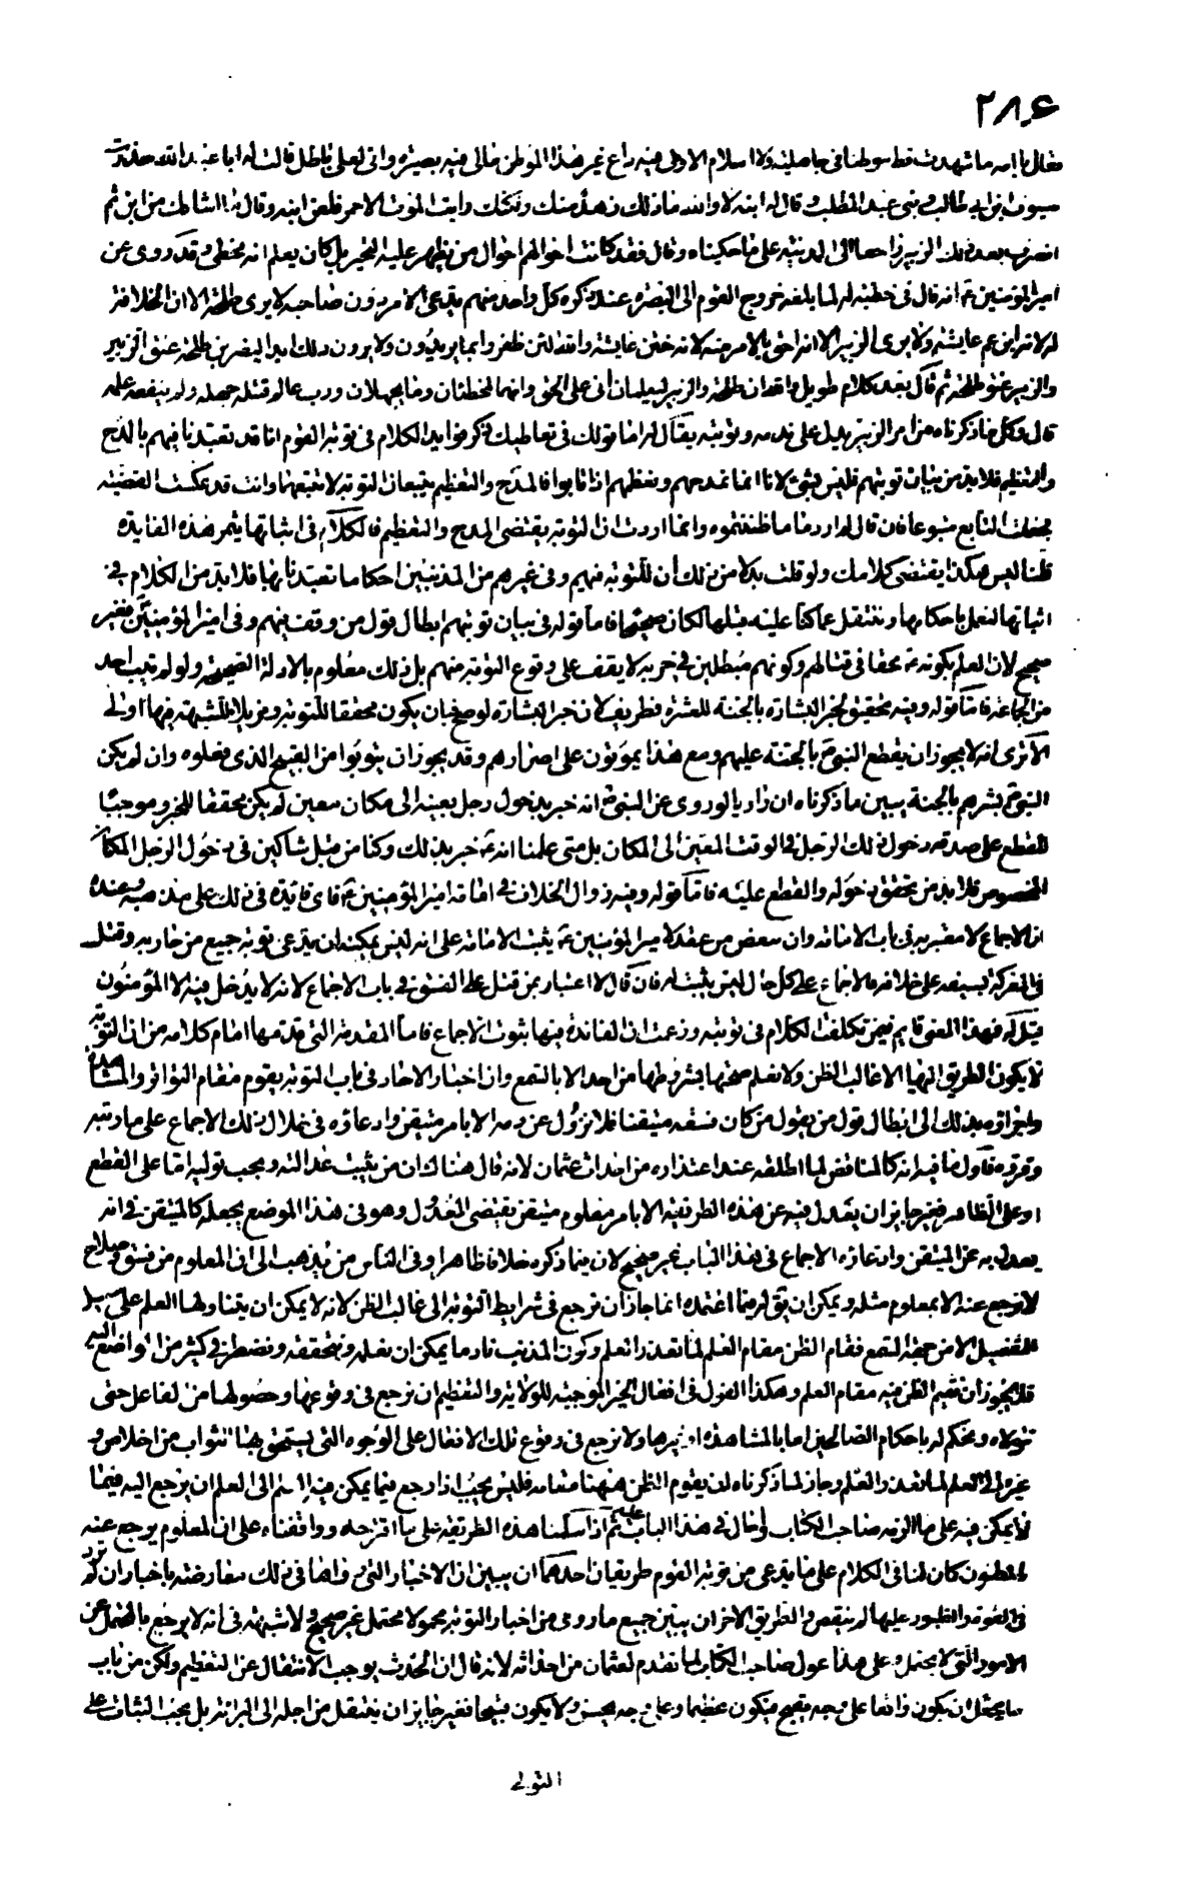 ٢٨٤
فقال يا امه ما شهدت قط موطنا فى جاهلية ولا اسلام الا ولى فيه راع غير هذا الموطن مالى فيه بصيرة وانى لعلى باطل قالت له ابا عبد الله حذرت
سيوف ابن ابى طالب وبنى عبد المطلب وقال له ابنه لا والله ما ذلك زهد منك ولكنك رايت الموت الاحمر فلعن ابنه وقال ما اشامك من ابن ثم
انصرف بعد ذلك الزبير راجعا الى المدينة على ما حكيناه وقال فقد كانت احوالهم احوال من يظهر عليه التحير بل كان يعلم انه مخطئ وقد روى عن
امير المؤمنين ع انه قال فى خطبته له لما بلغه خروج القوم الى البصرة عند ذكره كل واحد منهم يدعى الامر دون صاحبه لا يرى طلحة الا ان الخلافة
له لانه ابن عم عايشة ولا يرى الزبير الا انه احق بالامر منه لانه ختن عايشة والله لئن ظفروا بما يريدون ولا يرون ذلك ابدا ليضربن طلحة عنق الزبير
والزبير عنق طلحة ثم قال بعد كلام طويل والله ان طلحة والزبير ليعلمان انى على الحق وانهما لمخطئان وما يجهلان ورب عالم قتله جهله ولم ينفعه علمه
قال وكل ما ذكرناه من امر الزبير يدل على ندمه وتوبته يقال له اما قولك فى تعاطيك ذكر فوايد الكلام فى توبة القوم انا قد تعبدنا فيهم بالمدح
والتعظيم فلا بد من بيان توبتهم فليس بشئ لانا انما نمدحهم ونعظمهم اذا تابوا فالمدح والتعظيم يتبعان التوبة لا تتبعهما وانت قد عكست القضية
فجعلت التابع متبوعا فان قال لم ارد ما ظننتموه وانما اردت ان التوبة يقتضى المدح والتعظيم فالكلام فى اثباتها يثمر هذه الفايدة
قلنا ليس هكذا يقتضى كلامك ولو قلت بدلا من ذلك ان للتوبة فيهم وفى غيرهم من المذنبين احكاما تعبدنا بها فلا بد من الكلام فى
اثباتها لنعمل باحكامها وننتقل عما كنا عليه قبلها لكان صحيحا فاما قوله فى بيان توبتهم ابطال قول من وقف فيهم وفى امير المؤمنين فغير
صحيح لان العلم بكونه ع محقا فى قتالهم وكونهم مبطلين فى حربه لا يقف على وقوع التوبة منهم بل ذلك معلوم بالادلة الصحيحة ولو لم يتب احد
من الجماعة فاما قوله وفيه تحقيق لخبر البشارة بالجنة للعشرة فطريف لان خبر البشارة لو صح بان يكون محققا للتوبة ومزيلا للشبهة فيها اولى
الا ترى انه لا يجوز ان يقطع النبى ص بالجنة عليهم ومع هذا يموتون على اصرارهم وقد يجوز ان يتوبوا من القبيح الذى فعلوه وان لم يكن
النبى ص بشرهم بالجنة يبين ما ذكرناه ان راويا لو روى عن النبى ص انه خبر بدخول رجل بعينه الى مكان معين لم يكن محققا للخبر وموجبا
للقطع على صدقه دخول ذلك الرجل فى الوقت المعين الى المكان بل متى علمنا انه ع خبر بذلك وكنا من قبل شاكين فى دخول الرجل المكان
المخصوص فلا بد من تحقق دخوله والقطع عليه فاما قوله وفيه زوال الخلاف فى امامة امير المؤمنين ع فاى فايدة فى ذلك على مذهبه وعنده
ان الاجماع لا معتبر به فى باب الامامة وان بعض من عقد لامير المؤمنين ع يثبت الامامة على انه ليس يمكنه ان يدعى توبة جميع من حاربه وقتل
فى المعركة بسيفه على خلافه فالاجماع على كل حال ليس يثبت له فان قال لا اعتبار بمن قتل على الفسق فى باب الاجماع لانه لا يدخل فيه الا المؤمنون
قيل له فهذا المعنى قايم فيمن تكلفت الكلام فى توبته وزعمت ان الفائدة فيها ثبوت الاجماع فاما المقدمة التى قدمها امام كلامه من ان التوبة
لا يكون الطريق اليها الا غالب الظن ولا نعلم صحتها بشروطها من احد الا بالسمع وان اخبار الاحاد فى باب التوبة يقوم مقام التواتر والمشاهدة
واجزاؤه بذلك الى ابطال قول من يقول من كان فسقه متيقنا فلا نزول عن ذمه الا بامر متيقن وادعاؤه فى خلال ذلك الاجماع على ما رتبه
وقرره فاول ما فيه انه كالمناقض لما اطلقه عند اعتذاره من احداث عثمان لانه قال هناك ان من يثبت عدالته ويجب توليه اما على القطع
او على الظاهر فغير جايز ان يعدل فيه عن هذه الطريقة الا بامر معلوم متيقن يقتضى العدول وهو فى هذا الموضع يجعله كالمتيقن فى انه
يعدل به عن المتيقن وادعاؤه الاجماع فى هذا الباب غير صحيح لان فيما ذكره خلافا ظاهرا وفى الناس من يذهب الى ان المعلوم من فسق وصلاح
لا نرجع عنه الا بمعلوم مثله ويمكن ان يق له فيما اعتمده انما جاز ان نرجع فى شرايط التوبة الى غالب الظن لانه لا يمكن ان يتناولها العلم على سبيل
التفصيل الا من جهة السمع فقام الظن مقام العلم لما تعذر العلم وكون المذنب نادما يمكن ان نعلمه ونتحققه ونضطر فى كثير من المواضع اليه
فلا يجوز ان نقيم الظن فيه مقام العلم وهكذا القول فى افعال الخير الموجبة للولاية والتعظيم ان نرجع فى وقوعها وحصولها من الفاعل حتى
نتولاه ونحكم له باحكام الصالحين اما بالمشاهدة او غيرها ولا نرجع فى وقوع تلك الافعال على الوجوه التى يستحق بها الثواب من اخلاص و
غيره الى العلم لما تعذر العلم وجاز لما ذكرناه ان يقوم الظن ههنا مقامه فليس يجب اذا رجع فيما يمكن فيه العلم الى العلم ان يرجع اليه فيما
لا يمكن فيه على ما الزمه صاحب الكتاب فى هذا الباب ثم اذا سلمنا هذه الطريقة على ما اقترحه ووافقناه على ان المعلوم يرجع عنه
بالمظنون كان لنا فى الكلام على ما يدعى من توبة القوم طريقان احدهما ان يبين ان الاخبار التى رواها فى ذلك معارضة باخبار ان لم تزد
فى القوة والظهور عليها لم ينقص والطريق الاخر ان يبين جميع ما روى من اخبار التوبة محمولا محتمل غير صحيح ولا شبهة فى انه لا يرجع بالمحتمل عن
الامور التى لا يحتمل وعلى هذا عول صاحب الكتاب لما تقدم لعثمان من احداثه لانه قال ان الحدث يوجب الانتقال عن التعظيم ولكن من باب
ما يحتمل ان يكون واقعا على وجه يقبح فيكون عظيما وعلى وجه يحسن ولا يكون قبيحا فغير جايز ان ينتقل من اجله الى البراءة بل يجب الثبات على
التولى